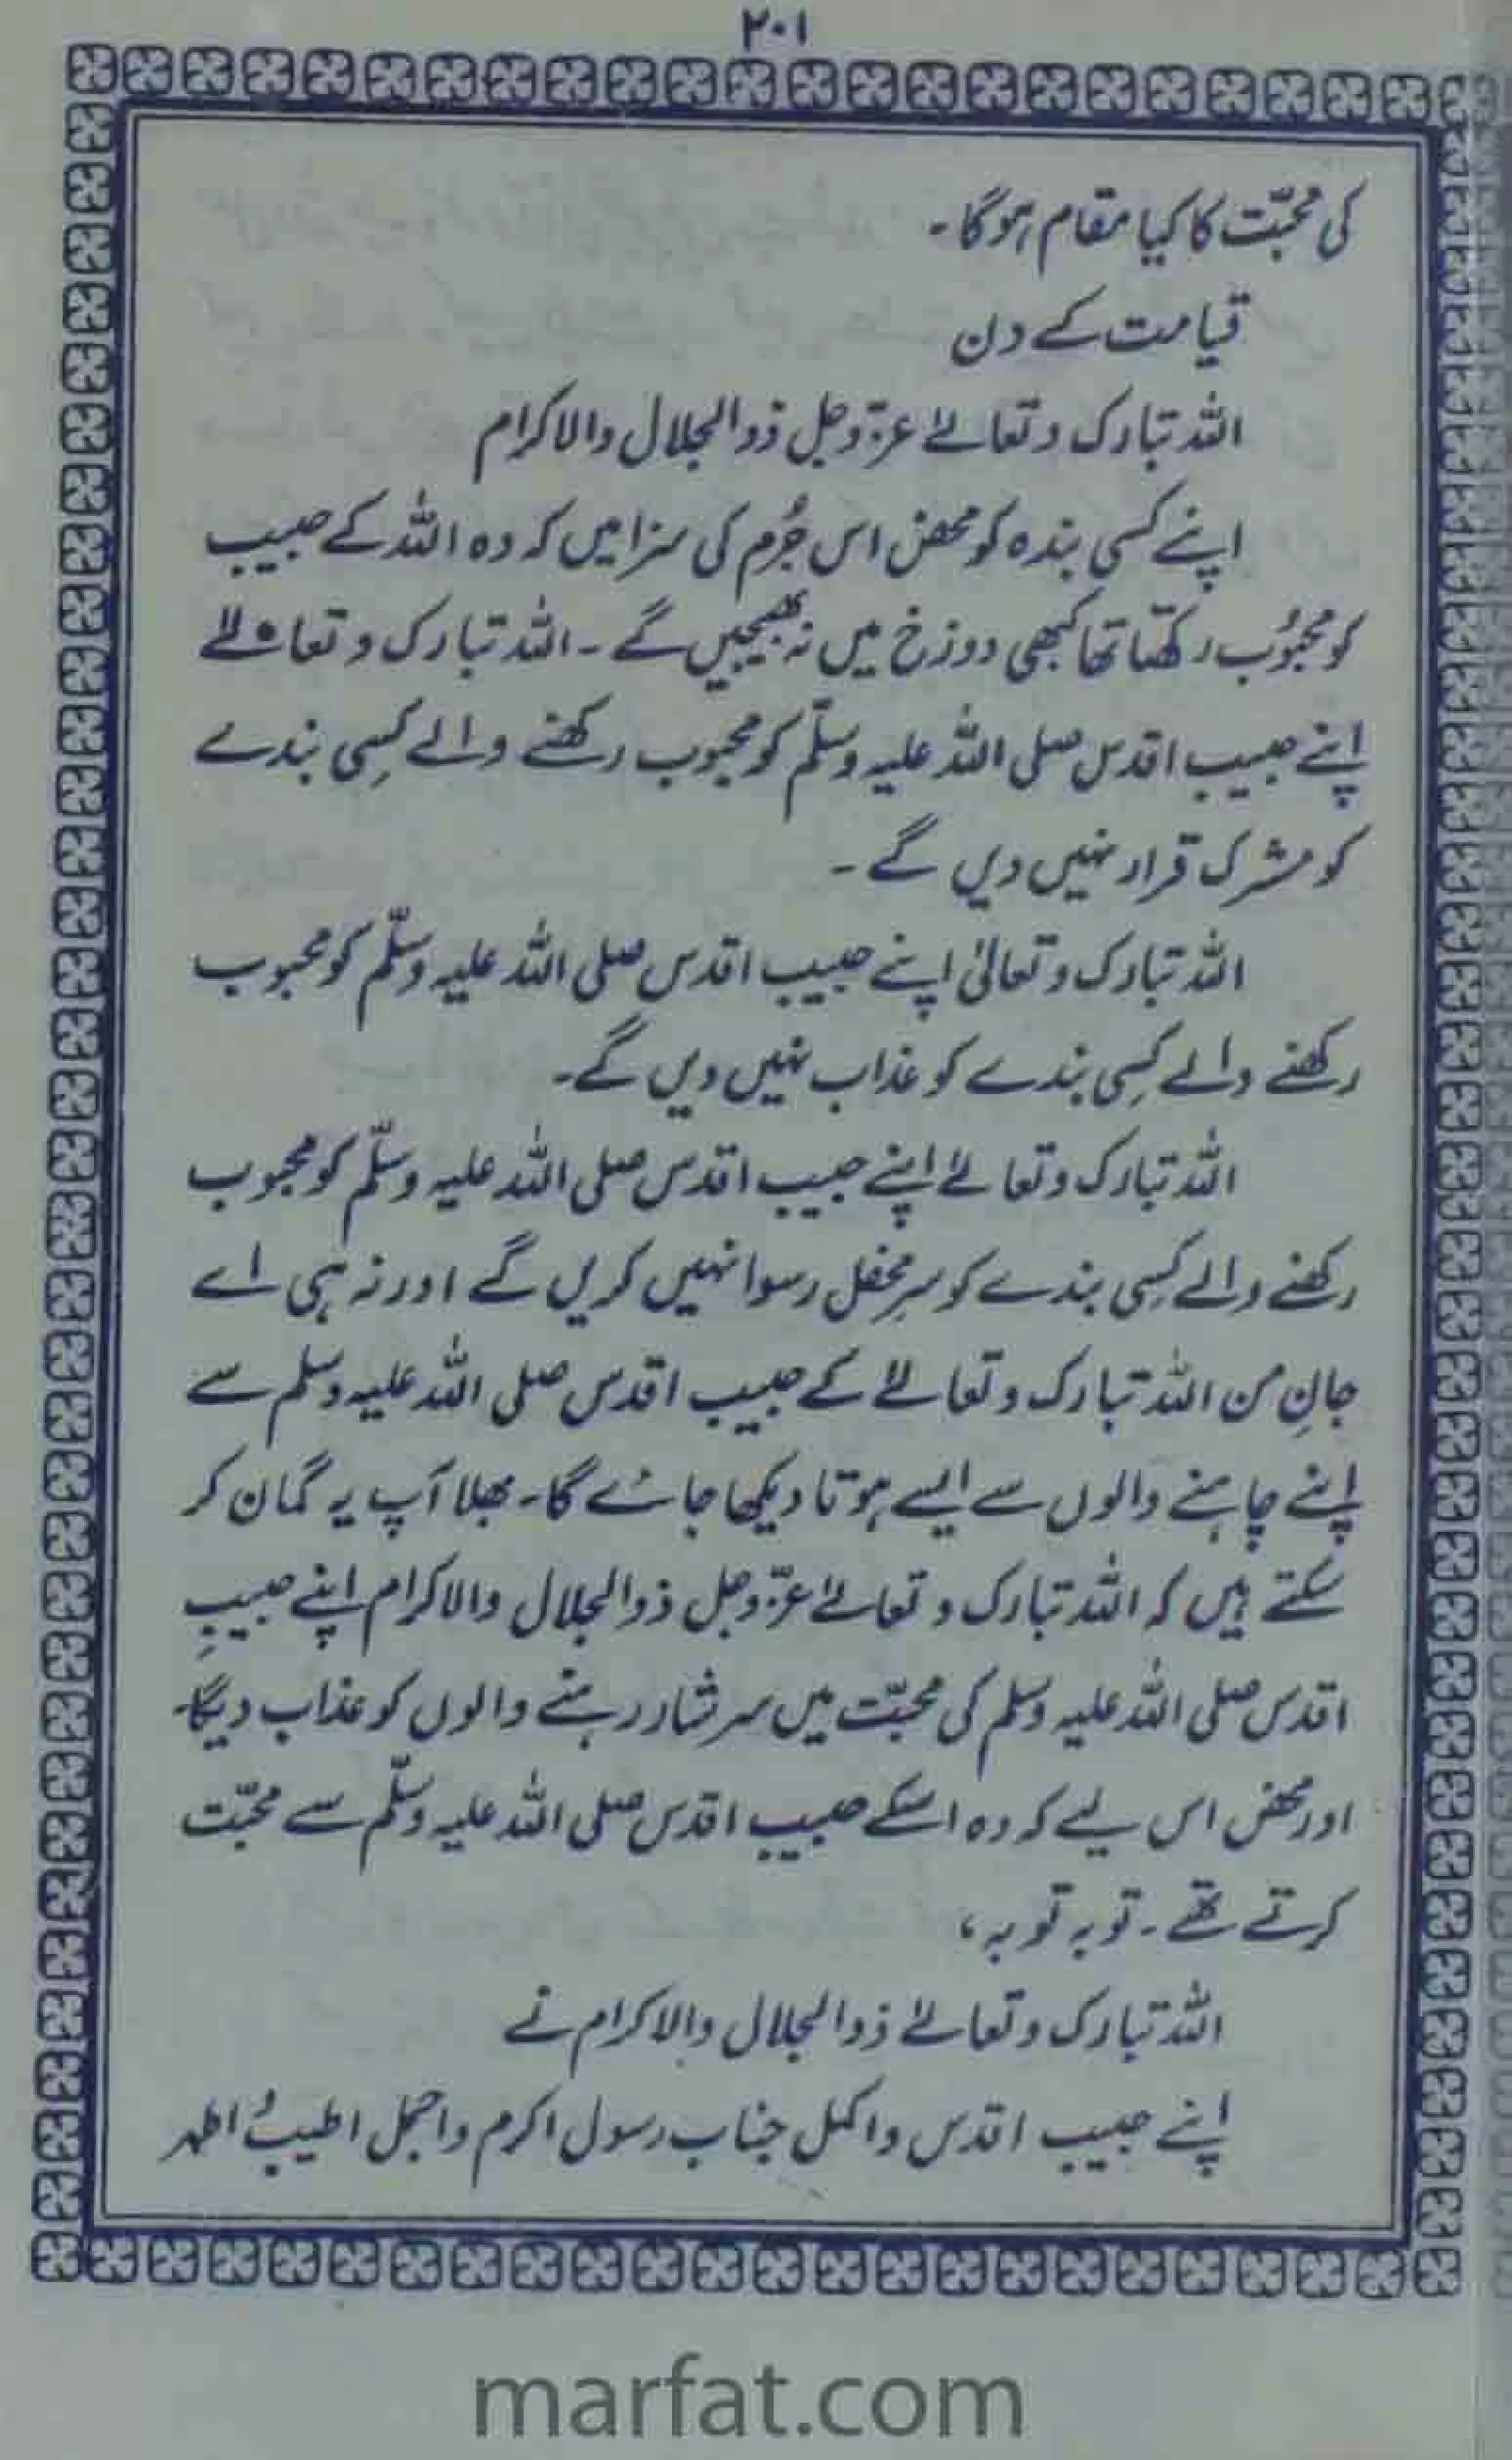 ۲۰۱
کی محبّت کا کیا مقام ہوگا۔
قیامت کے دن
اللہ تبارک و تعالےٰ عزّوجل ذوالجلال والاکرام
اپنے کسی بندہ کو محض اس جُرم کی سزا میں کہ وہ اللہ کے حبیب
کو محبُوب رکھّتا تھا کبھی دوزخ میں نہ بھیجیں گے۔ اللہ تبارک و تعالےٰ
اپنے حبیب اقدس صلی اللہ علیہ وسلّم کو محبوب رکھنے والے کِسی بندے
کو مشرک قرار نہیں دیں گے۔
اللہ تبارک و تعالیٰ اپنے حبیب اقدس صلی اللہ علیہ وسلّم کو محبوب
رکھنے والے کِسی بندے کو عذاب نہیں دیں گے۔
اللہ تبارک و تعالےٰ اپنے حبیب اقدس صلی اللہ علیہ وسلّم کو محبوب
رکھنے والے کِسی بندے کو سرِ محفل رسوا نہیں کریں گے اور نہ ہی اے
جانِ من اللہ تبارک و تعالےٰ کے حبیب اقدس صلی اللہ علیہ وسلم سے
اپنے چاہنے والوں سے ایسے ہوتا دیکھا جائے گا۔ بھلا آپ یہ گمان کر
سکتے ہیں کہ اللہ تبارک و تعالےٰ عزّوجل ذوالجلال والاکرام اپنے حبیبِ
اقدس صلی اللہ علیہ وسلم کی محبّت میں سرشار رہنے والوں کو عذاب دیگا۔
اور محض اس لیے کہ وہ اسکے حبیب اقدس صلی اللہ علیہ وسلّم سے محبّت
کرتے تھے۔ توبہ توبہ،
اللہ تبارک و تعالےٰ ذوالجلال والاکرام نے
اپنے حبیب اقدس و اکمل جناب رسول اکرم و اجمل اطیبُ اطہر
marfat.com